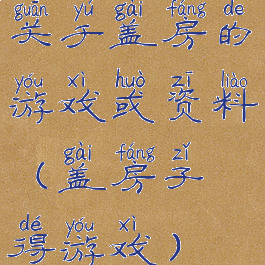 guān yú gài fáng de
关于盖房的
yóu xì huò zī liào
游戏或资料
gài fáng zǐ
(盖房子
dé yóu xì
得游戏)